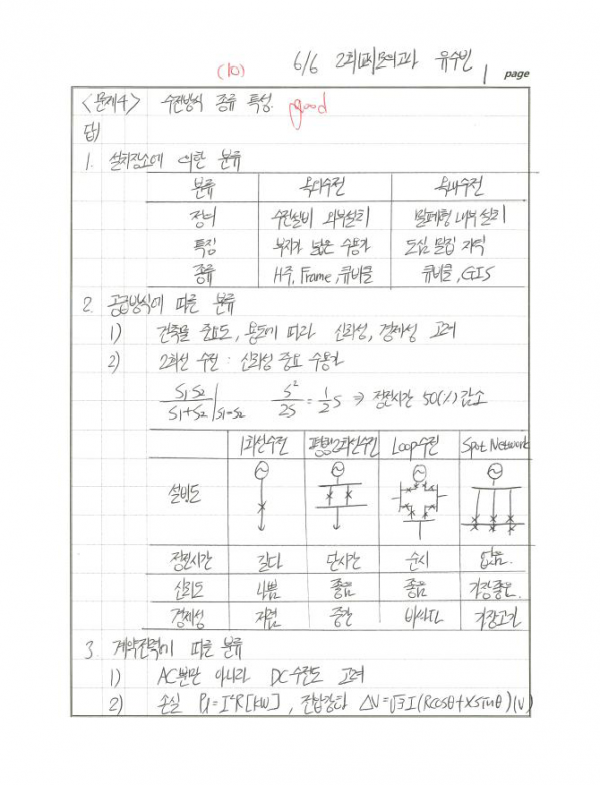 (10) 6/6 2회 모의고사 유수빈 1 page
<문제4> 수전방식 종류 특성. good
답)
1. 설치장소에 의한 분류
분류 옥외수전 옥내수전
정의 수전설비 외부설치 밀폐형 내부 설치
특징 부지가 넓은 수용가 도심 밀집 지역
종류 H주, Frame, 큐비클 큐비클, GIS
2. 공급방식에 따른 분류
1) 건축물 중요도, 용도에 따라 신뢰성, 경제성 고려
2) 2회선 수전 : 신뢰성 중요 수용가
S1 S2 / S1+S2 | S1=S2 S² / 2S = 1/2 S ⇒ 정전시간 50(%) 감소
1회선수전 평행2회선수전 Loop수전 Spot Network
설비도
정전시간 길다 단시간 순시 없음.
신뢰도 나쁨 좋음 좋음 가장좋은.
경제성 저렴 중간 비싸다 가장고가
3. 계약전력에 따른 분류
1) AC뿐만 아니라 DC수전도 고려
2) 손실 Pl=I²R[kW], 전압강하 ΔV=√3I(Rcosθ+Xsinθ)(V)